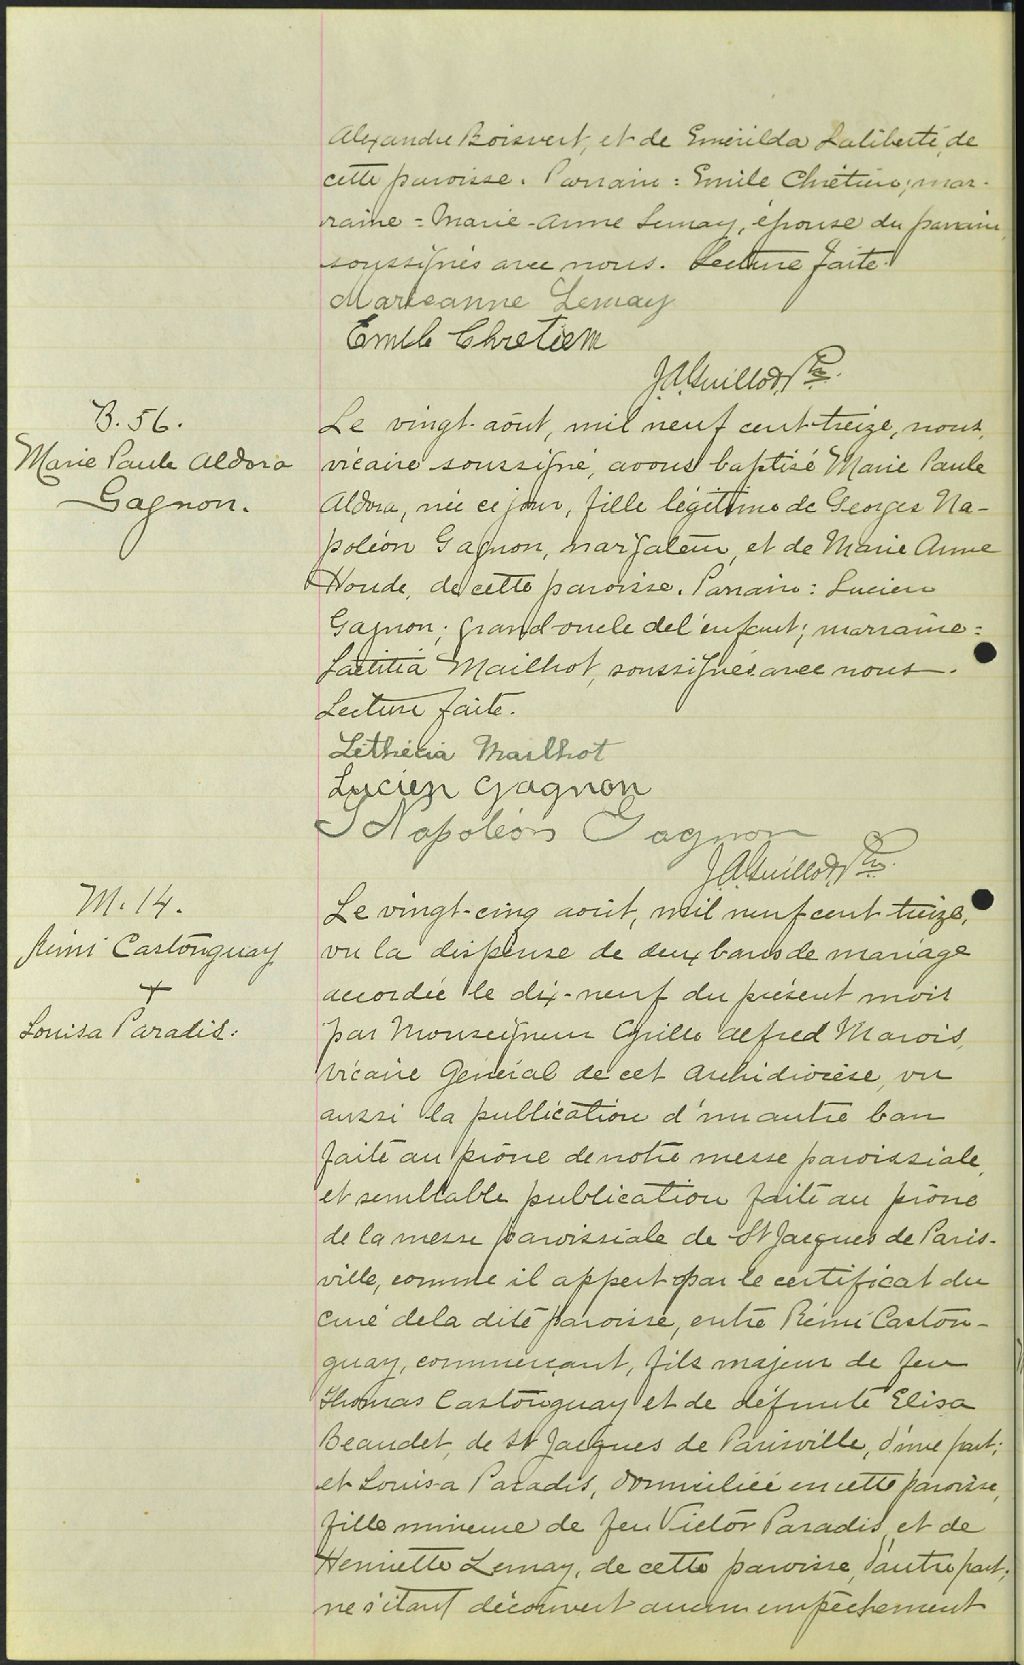 Alexandre Boisvert, et de Emérilda Laliberté, de
cette paroisse. Parrain : Emile Chrétien; mar-
raine = Marie-Anne Lemay, épouse du parrain,
soussignés avec nous. Lecture faite.
Marieanne Lemay
Emile Chretiem
J.A. Guillot, Ptre.
B. 56.
Marie Paule Aldora
Gagnon.
Le vingt-août, mil neuf cent-treize, nous,
vicaire soussigné, avons baptisé Marie Paule
Aldora, née ce jour, fille légitime de Georges Na-
poléon Gagnon, navigateur, et de Marie Anne
Houde, de cette paroisse. Parrain : Lucien
Gagnon; grand-oncle de l'enfant; marraine =
Laetitia Mailhot, soussignés avec nous.
Lecture faite.
Lethécia Mailhot
Lucien Gagnon
Napoléon Gagnon
J.A. Guillot, Ptre.
M. 14.
Rémi Castonguay
+
Louisa Paradis.
Le vingt-cinq août, mil neuf cent treize,
vu la dispense de deux bans de mariage
accordée le dix-neuf du présent mois
par Monseigneur Cyrille Alfred Marois,
vicaire Général de cet Archidiocèse, vu
aussi la publication d'un autre ban
faite au prône de notre messe paroissiale,
et semblable publication faite au prône
de la messe paroissiale de St Jacques de Paris-
ville, comme il appert par le certificat du
curé de la dite paroisse, entre Rémi Caston-
guay, commerçant, fils majeur de feu
Thomas Castonguay et de défunte Elisa
Beaudet, de St Jacques de Parisville, d'une part;
et Louisa Paradis, domiciliée en cette paroisse,
fille mineure de feu Victor Paradis, et de
Henriette Lemay, de cette paroisse, d'autre part;
ne s'étant découvert aucun empêchement